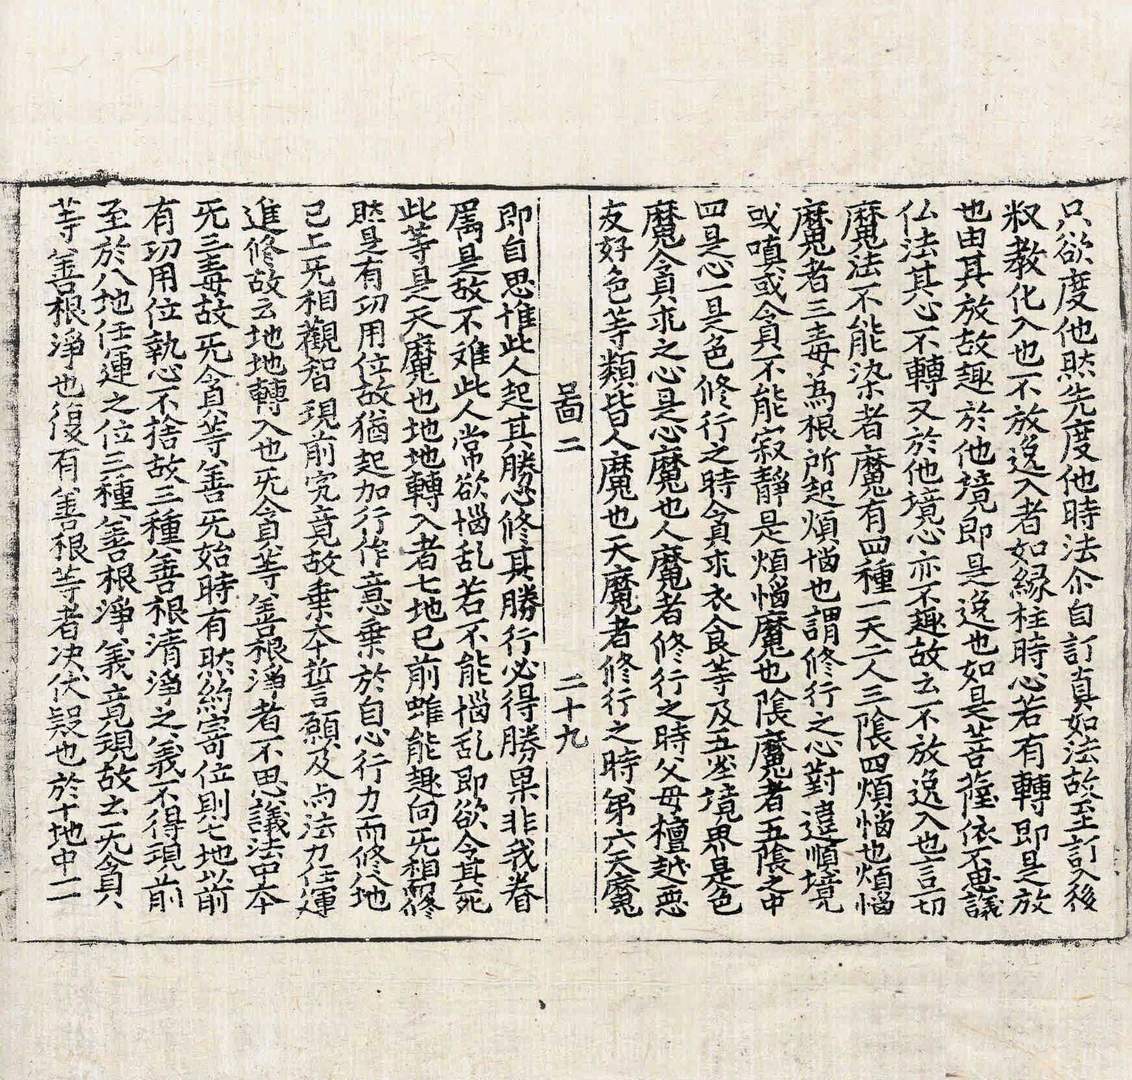 只欲度他然先度他時法尒自訂真如法故至訂入後
权教化入也不放逸入者如緣柱時心若有轉即是放
也由其放故趣於他境即是逸也如是菩薩依不思議
仏法其心不轉又於他境心亦不趣故云不放逸入也言一切
魔法不能染者魔有四種一天二人三陰四煩惱也煩惱
魔者三毒為根所起煩惱也謂修行之心對違順境
或嗔或貪不能寂靜是煩惱魔也陰魔者五陰之中
四是心一是色修行之時貪求衣食等及五塵境界是色
魔貪求之心是心魔也人魔者修行之時父母檀越惡
友好色等類皆人魔也天魔者修行之時第六天魔
啚二 二十九
即自思惟此人起其勝心修其勝行必得勝果非我眷
属是故不难此人常欲惱乱若不能惱乱即欲令其死
此等是天魔也地地轉入者七地已前雖能趣向旡相而修
然是有功用位故猶起加行作意乗於自心行力而修八地
已上旡相觀智現前究竟故乗本誓願及与法力任運
進修故云地地轉入也旡貪等善根淨者不思議法中本
旡三毒故旡貪等善旡始時有然約寄位則七地以前
有功用位執心不捨故三種善根清淨之義不得現前
至於八地任運之位三種善根淨義竟現故云旡貪
等善根淨也復有善根等者决伏疑也於十地中二